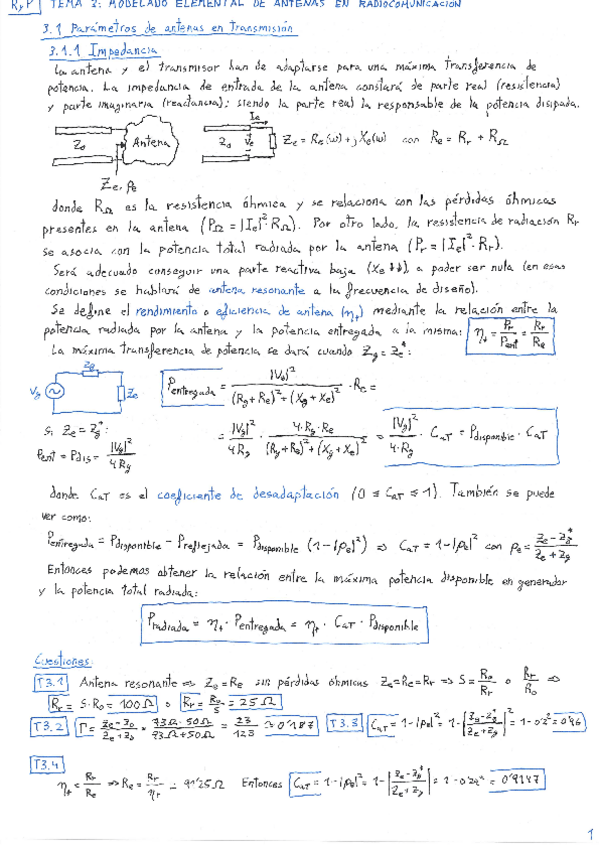 RyP TEMA 3: MODELADO ELEMENTAL DE ANTENAS EN RADIOCOMUNICACIÓN
3.1 Parámetros de antenas en transmisión
3.1.1 Impedancia
La antena y el transmisor han de adaptarse para una máxima transferencia de
potencia. La impedancia de entrada de la antena constará de parte real (resistencia)
y parte imaginaria (reactancia); siendo la parte real la responsable de la potencia disipada.
Ze Antena Z0 Ve Ie Ze = Re(ω) + j Xe(ω) con Re = Rr + RΩ
Ze, ρe
donde RΩ es la resistencia óhmica y se relaciona con las pérdidas óhmicas
presentes en la antena (PΩ = |Ie|²·RΩ). Por otro lado, la resistencia de radiación Rr
se asocia con la potencia total radiada por la antena (Pr = |Ie|²·Rr).
Será adecuado conseguir una parte reactiva baja (Xe↓↓), a poder ser nula (en esas
condiciones se hablará de antena resonante a la frecuencia de diseño).
Se define el rendimiento o eficiencia de antena (ηt) mediante la relación entre la
potencia radiada por la antena y la potencia entregada a la misma: ηt = Pr/Pent = Rr/Re
La máxima transferencia de potencia se dará cuando Zg = Ze*:
Vg Zg Ze Pentregada = |Vg|² / ((Rg+Re)² + (Xg+Xe)²) · Re =
Si Ze = Zg*:
Pent = Pdis = |Vg|² / 4Rg
= |Vg|²/4Rg · 4·Rg·Re / ((Rg+Re)² + (Xg+Xe)²) = |Vg|²/4·Rg · CaT = Pdisponible · CaT
donde CaT es el coeficiente de desadaptación (0 ≤ CaT ≤ 1). También se puede
ver como:
Pentregada = Pdisponible − Preflejada = Pdisponible (1−|ρe|²) ⇒ CaT = 1−|ρe|² con ρe = (Ze−Zg*)/(Ze+Zg)
Entonces podemos obtener la relación entre la máxima potencia disponible en generador
y la potencia total radiada:
Pradiada = ηt · Pentregada = ηt · CaT · Pdisponible
Cuestiones:
T3.1 Antena resonante ⇒ Ze = Re sin pérdidas óhmicas Ze = Re = Rr ⇒ S = Ro/Rr o Rr/Ro ⇒
Rr = S·Ro = 100Ω o Rr = Ro/S = 25Ω
T3.2 Γ = (Ze−Z0)/(Ze+Z0) = (73Ω−50Ω)/(73Ω+50Ω) = 23/123 = 0'187 T3.3 CaT = 1−|ρe|² = 1−|(Ze−Zg*)/(Ze+Zg)|² = 1−0'2² = 0'96
T3.4
ηt = Rr/Re ⇒ Re = Rr/ηt = 91'25Ω Entonces CaT = 1−|ρe|² = 1−|(Ze−Zg*)/(Ze+Zg)| = 1−0'29² = 0'9147
1